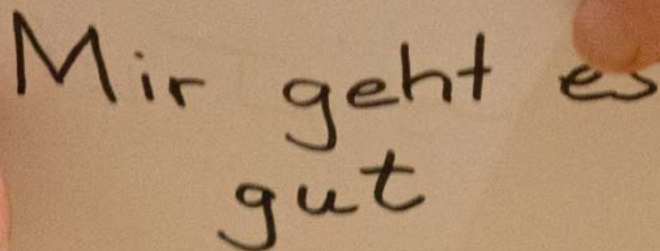 Mir geht es
gut